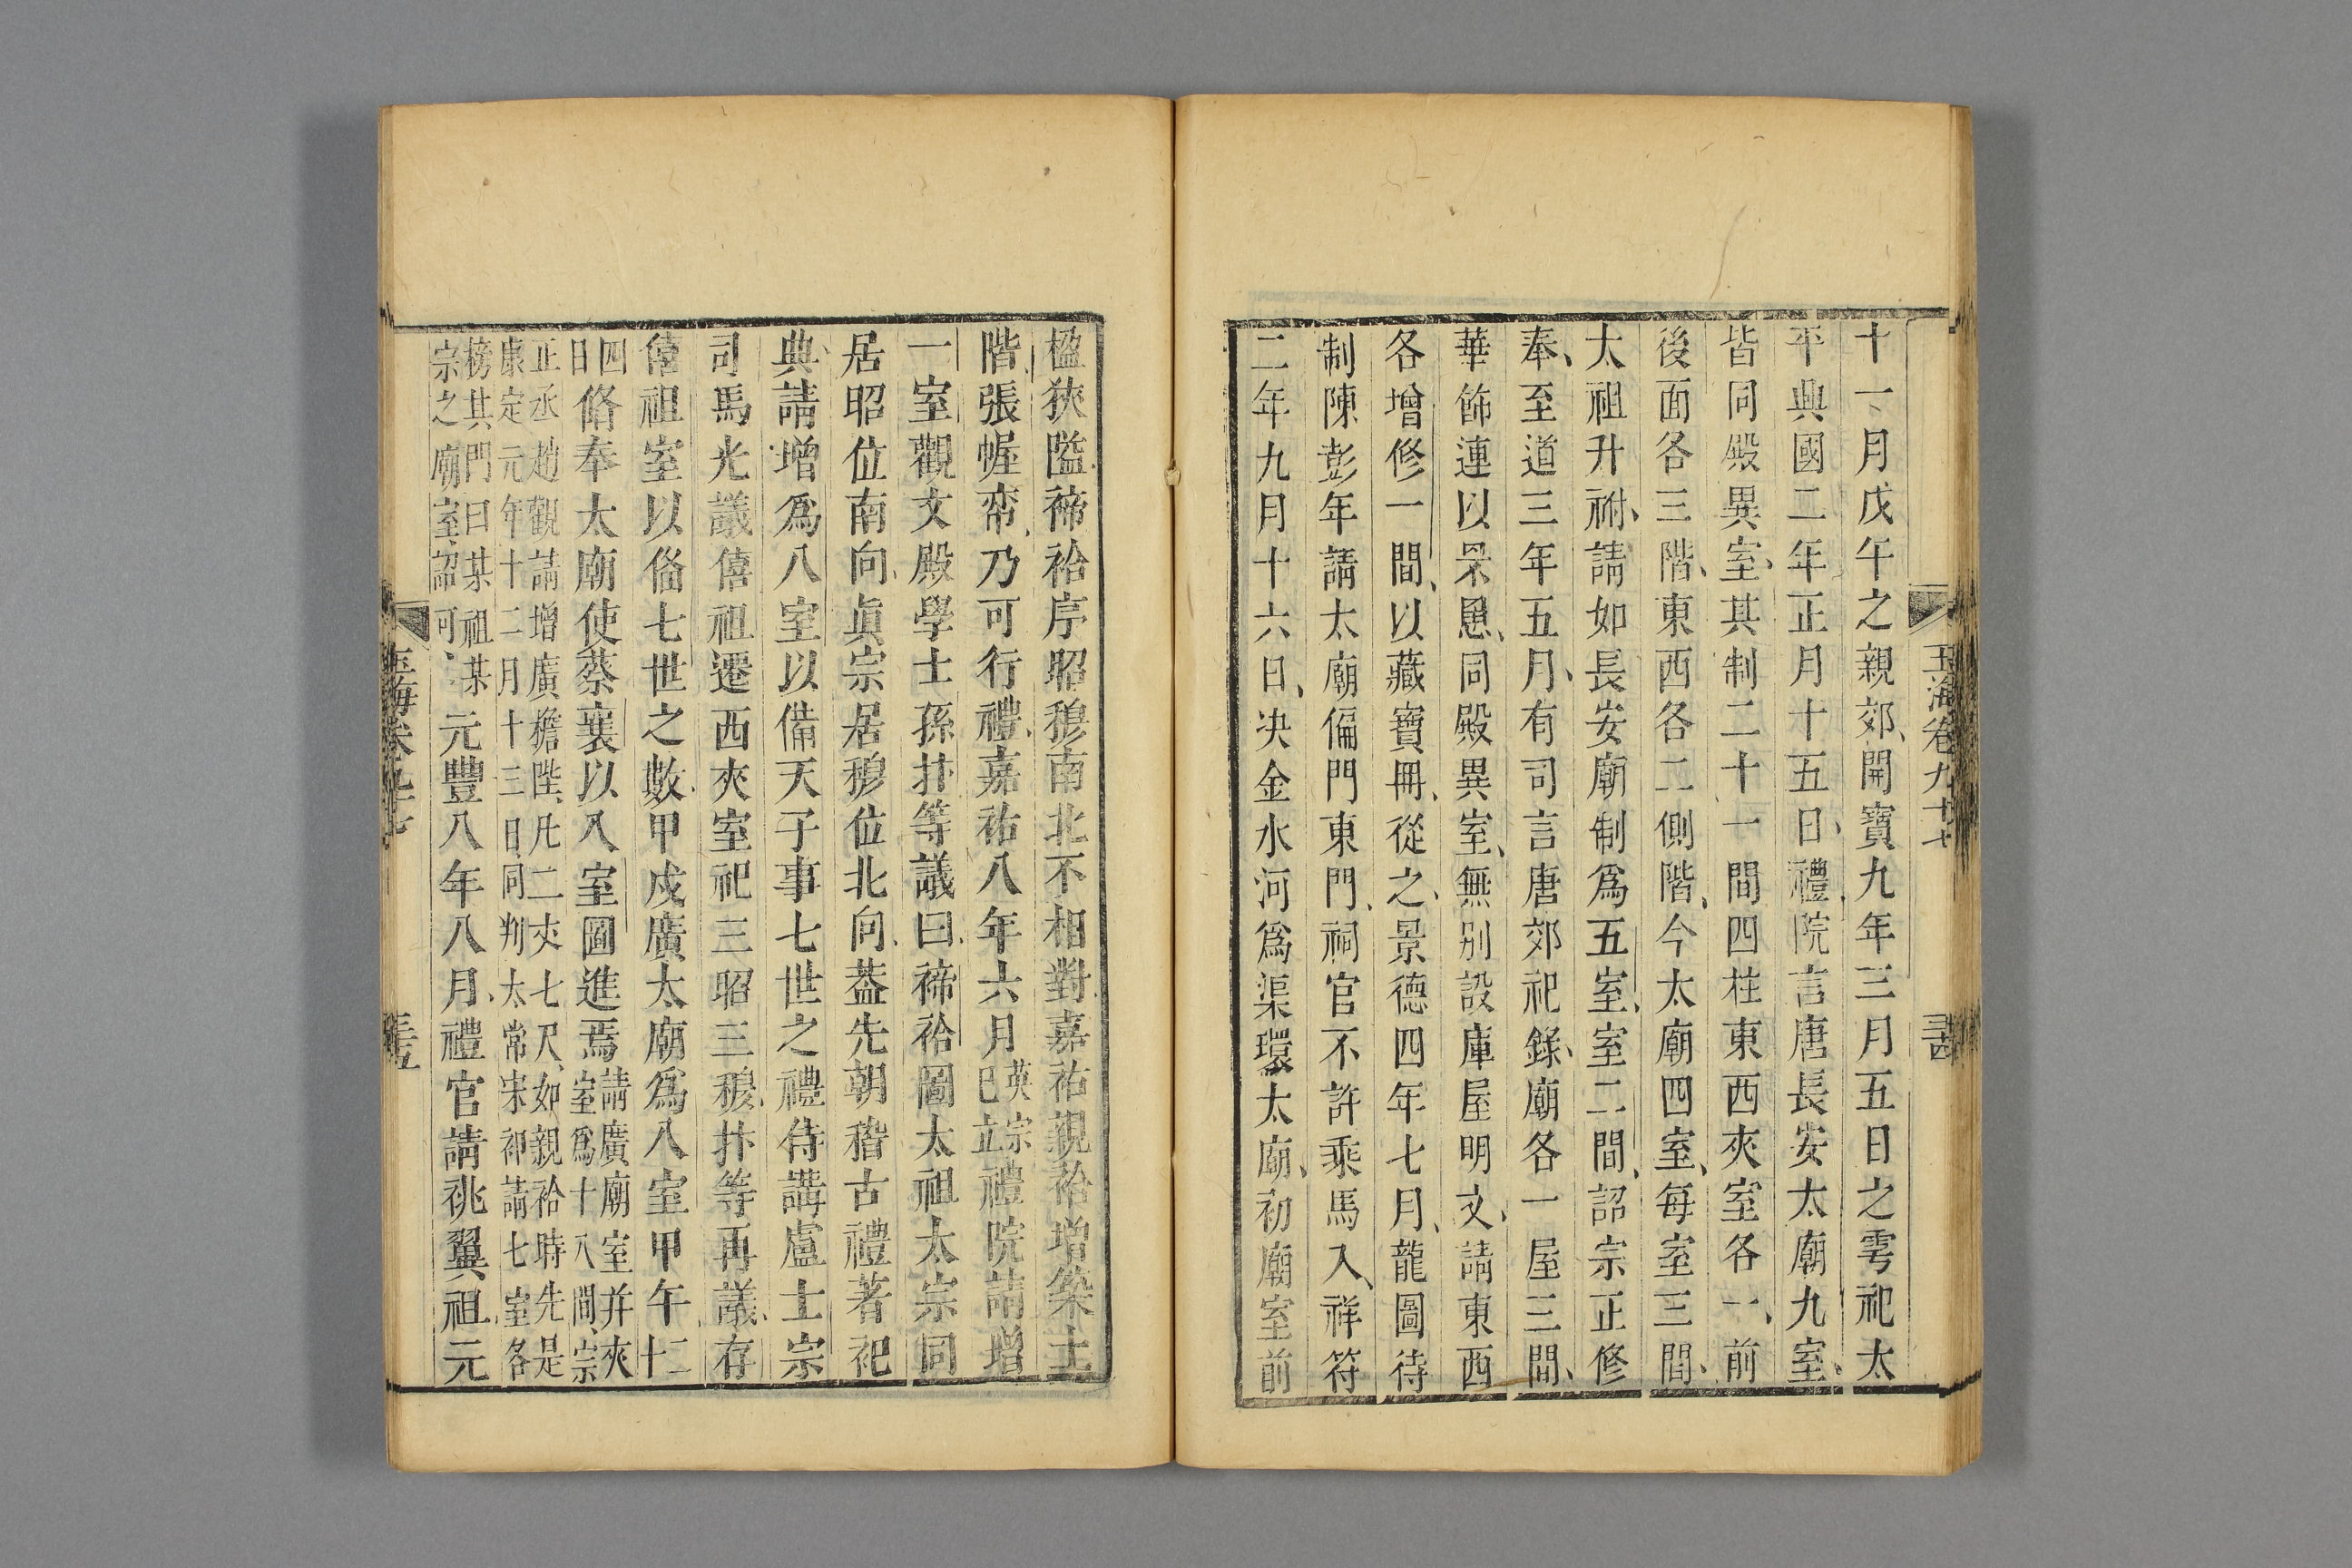 玉海卷九十七
十一月戊午之親郊開寶九年三月五日之雩祀太
平興國二年正月十五日禮院言唐長安太廟九室
皆同殿異室其制二十一間四柱東西夾室各一前
後面各三階東西各二側階今太廟四室每室三間
太祖升祔請如長安廟制爲五室室二間詔宗正修
奉至道三年五月有司言唐郊祀錄廟各一屋三間
華飾連以罘罳同殿異室無別設庫屋明文請東西
各增修一間以藏寶冊從之景德四年七月龍圖待
制陳彭年請太廟偏門東門祠官不許乘馬入祥符
二年九月十六日决金水河爲渠環太廟初廟室前
楹狹隘禘祫序昭穆南北不相對嘉祐親祫增築土
階張幄帟乃可行禮嘉祐八年六月英宗巳立禮院請增
一室觀文殿學士孫抃等議曰禘祫圖太祖太宗同
居昭位南向眞宗居穆位北向葢先朝稽古禮著祀
典請增爲八室以備天子事七世之禮待講盧士宗
司馬光議僖祖遷西夾室祀三昭三穆抃等再議存
僖祖室以俻七世之數甲戌廣太廟爲八室甲午十二
四日脩奉太廟使蔡襄以八室圖進焉請廣廟室并夾室爲十八間宗
正丞趙觀請增廣檐陛凡二丈七尺如親祫時先是康定元年十二月十三日同判太常宋祁請七室各
榜其門曰某祖某宗之廟室詔可元豐八年八月禮官請祧翼祖元